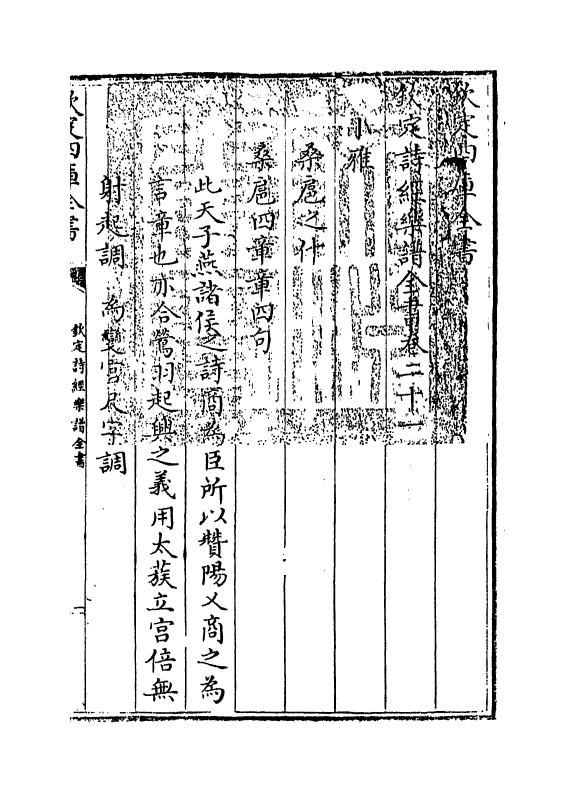 欽定四庫全書
欽定詩經樂譜全書卷二十一
小雅
桑扈之什
桑扈四章章四句
此天子燕諸侯之詩商為臣所以贊陽又商之為
言章也亦合鶯羽起興之義用太蔟立宮倍無
射起調　為變宮尺字調
欽定四庫全書
欽定詩經樂譜全書
一